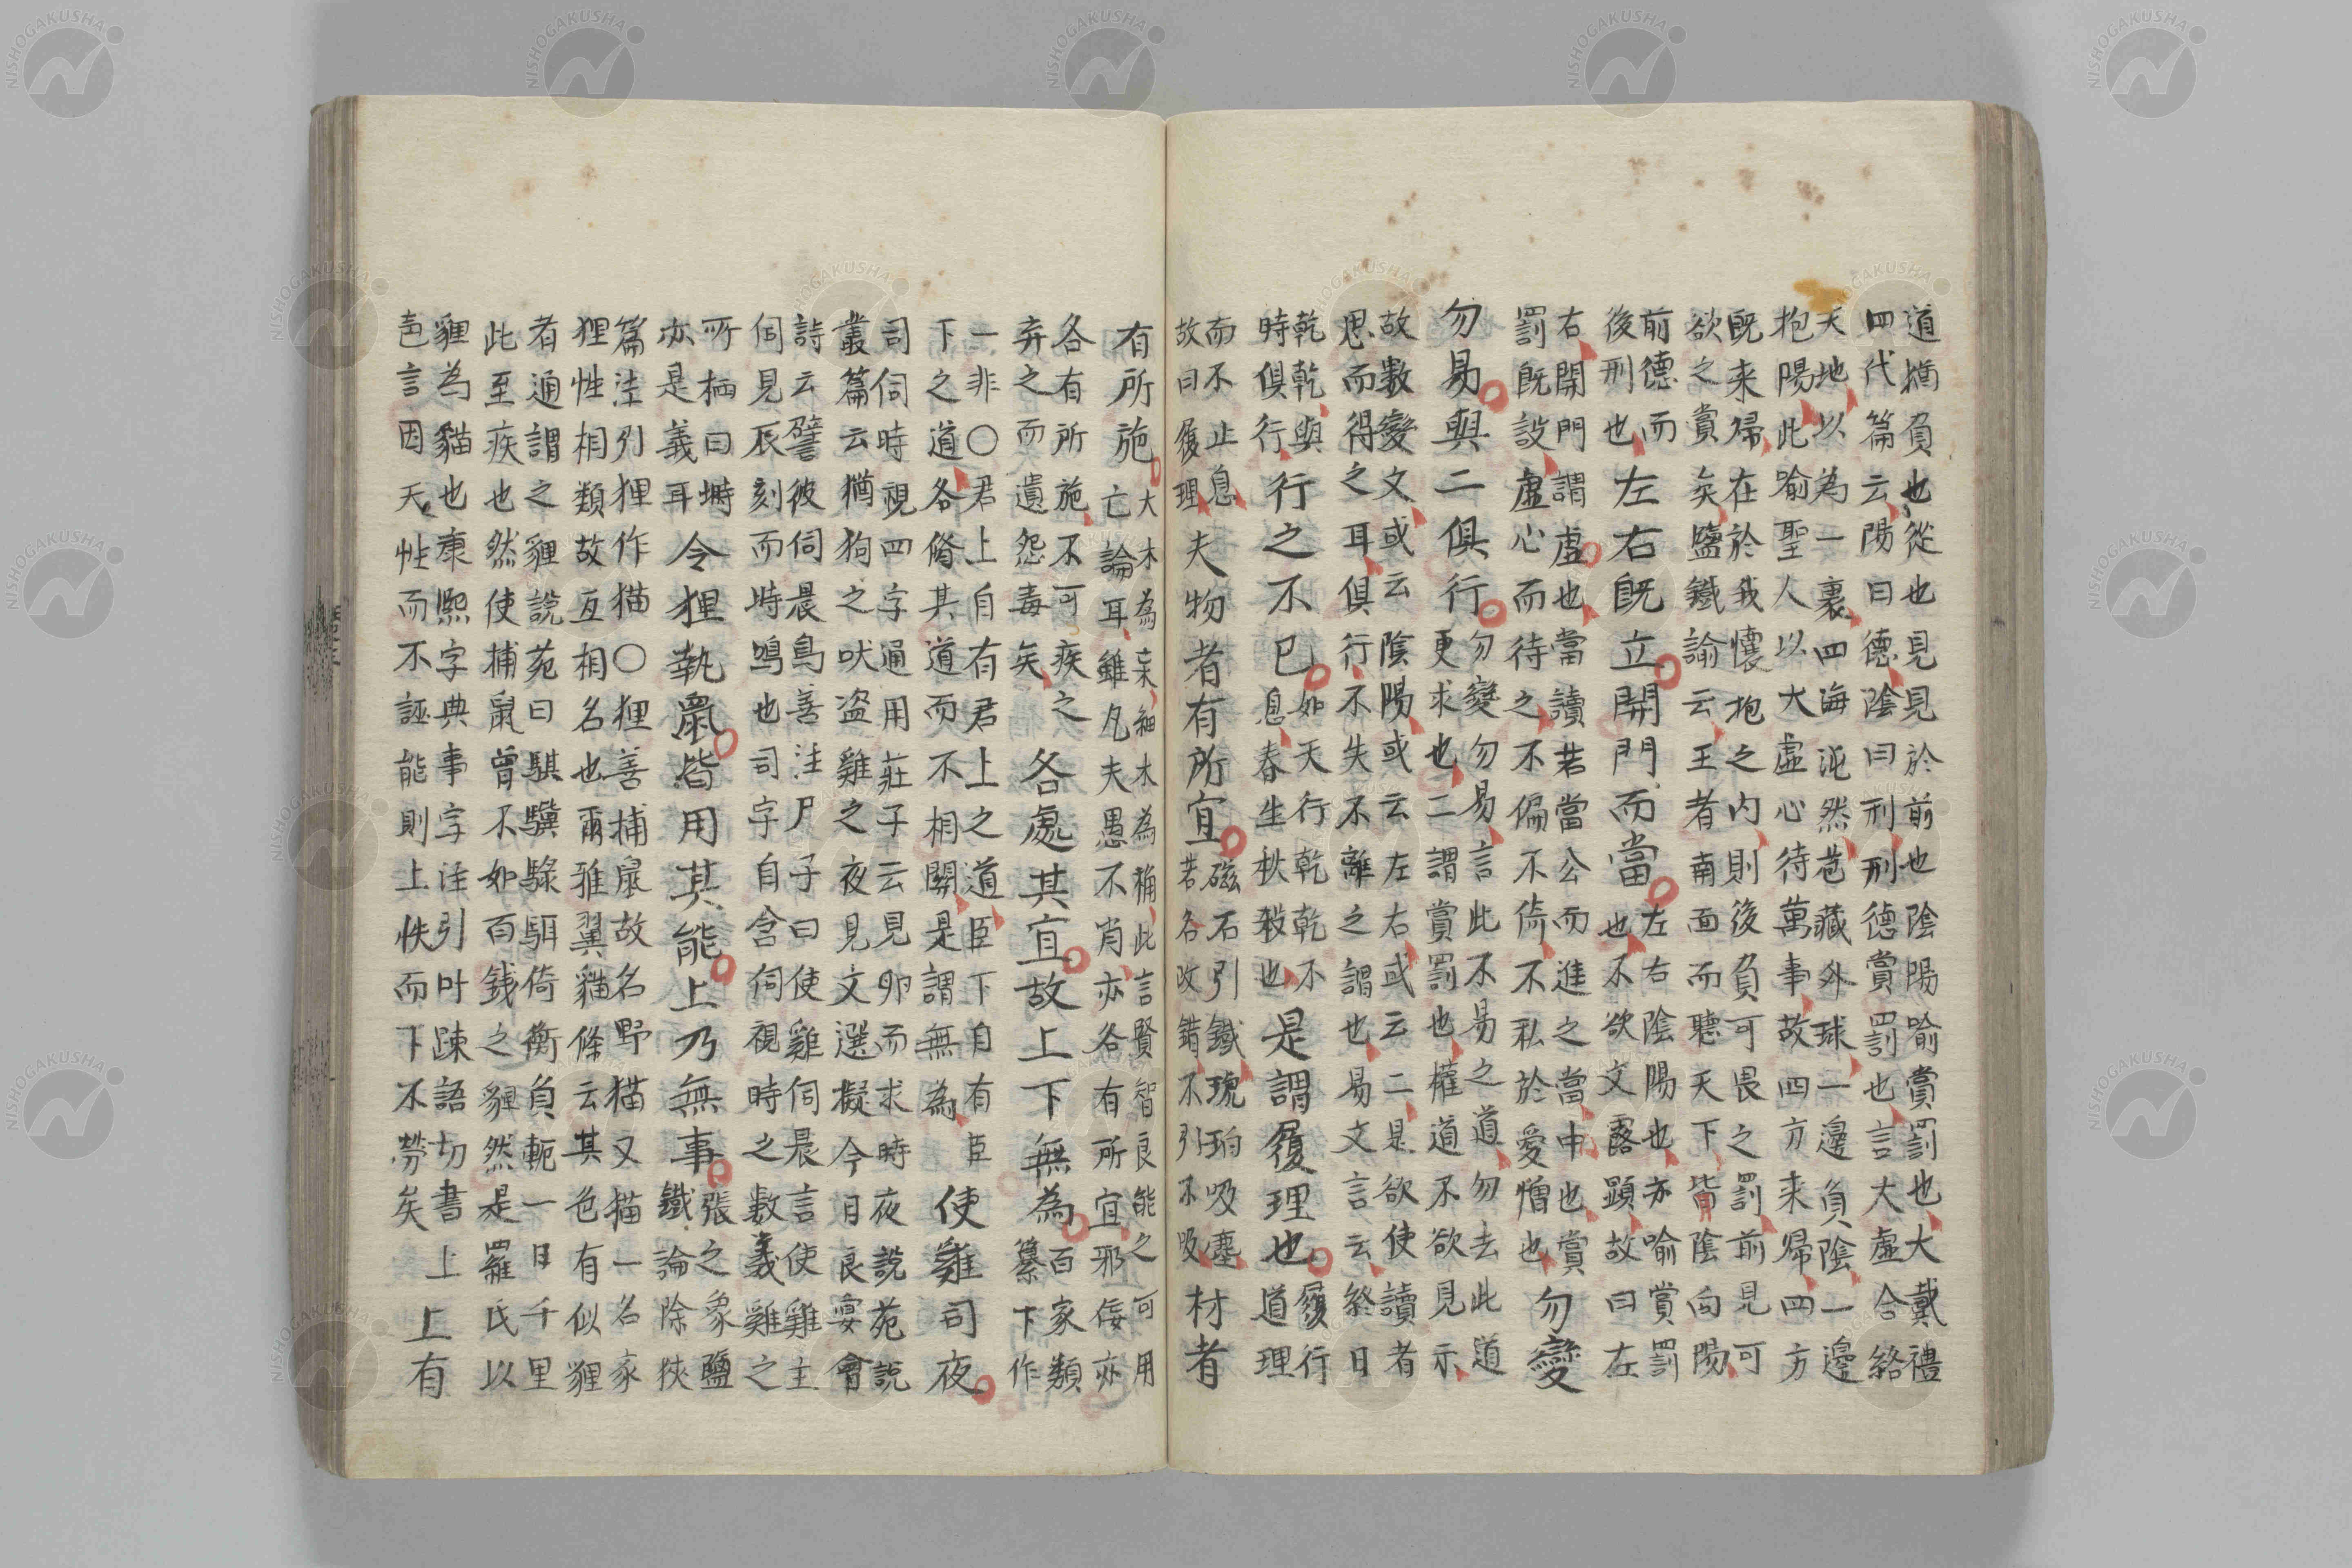 道猶負也從也見見於前也陰陽喻賞罰也大戴禮
四代篇云陽曰德陰曰刑刑德賞罰也言大虛合絡
天地以為一裹四海沌然苞藏外球一邊負陰一邊
抱陽此喻聖人以大虛心待萬事故四方来帰四方
既来帰在於我懷抱之内則後負可畏之罰前見可
欲之賞矣鹽鐵論云王者南面而聽天下皆陰向陽
前德而
後刑也
左右既立開門而當
左右陰陽也亦喻賞罰
也不欲文露顕故曰左
右開門謂虛也當讀若當公而進之當中也賞
罰既設虛心而待之不偏不倚不私於愛憎也
勿變
勿易與二俱行
勿變勿易言此不易之道勿去此道
更求也二謂賞罰也權道不欲見示
故數變文或云陰陽或云左右或云二是欲使讀者
思而得之耳俱行不失不離之謂也易文言云終日
乾乾與
時俱行
行之不已
如天行乾乾不
息春生秋殺也
是謂履理也
履行
道理
而不止息
故曰履理
夫物者有所宜
磁石引鐵琥珀吸塵
若各改錯不引不吸
材者
有所施
大木為杗細木為桷此言賢智良能之可用
亡論耳雖凡夫愚不肖亦各有所宜邪佞亦
各有所施不可疾之
弃之而遺怨毒矣
各處其宜故上下無為
百家類
纂下作
一非〇君上自有君上之道臣下自有臣
下之道各脩其道而不相關是謂無為
使雞司夜
司伺時視四字通用莊子云見卵而求時夜說苑說
叢篇云猶狗之吠盗雞之夜見文選擬今日良宴會
詩云譬彼伺晨鳥善注尸子曰使雞伺晨言使雞主
伺見辰刻而時鳴也司字自含伺視時之數義雞之
所栖曰塒
亦是義耳
令狸執鼠皆用其能上乃無事
張之象鹽
鐵論除狹
篇注引狸作猫〇狸善捕鼠故名野猫又猫一名家
狸性相類故互相名也爾雅翼貓條云其色有似貍
者通謂之貍說苑曰騏驥騄駬倚衡負軛一日千里
此至疾也然使捕鼠曾不如百錢之貍然是羅氏以
貍為貓也康熙字典事字注引叶踈語切書上
邑言因天性而不誣能則上佚而下不勞矣
上有